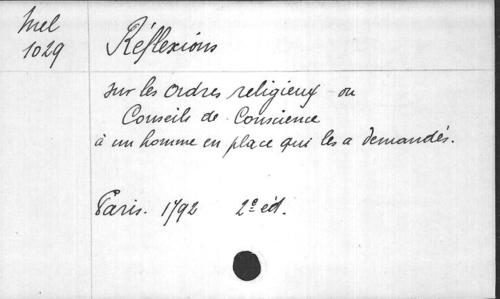 Mel
1029
Réflexions
sur les ordres religieux ou
Conseils de Conscience
à un homme en place qui les a demandés.
Paris. 1792 2e éd.